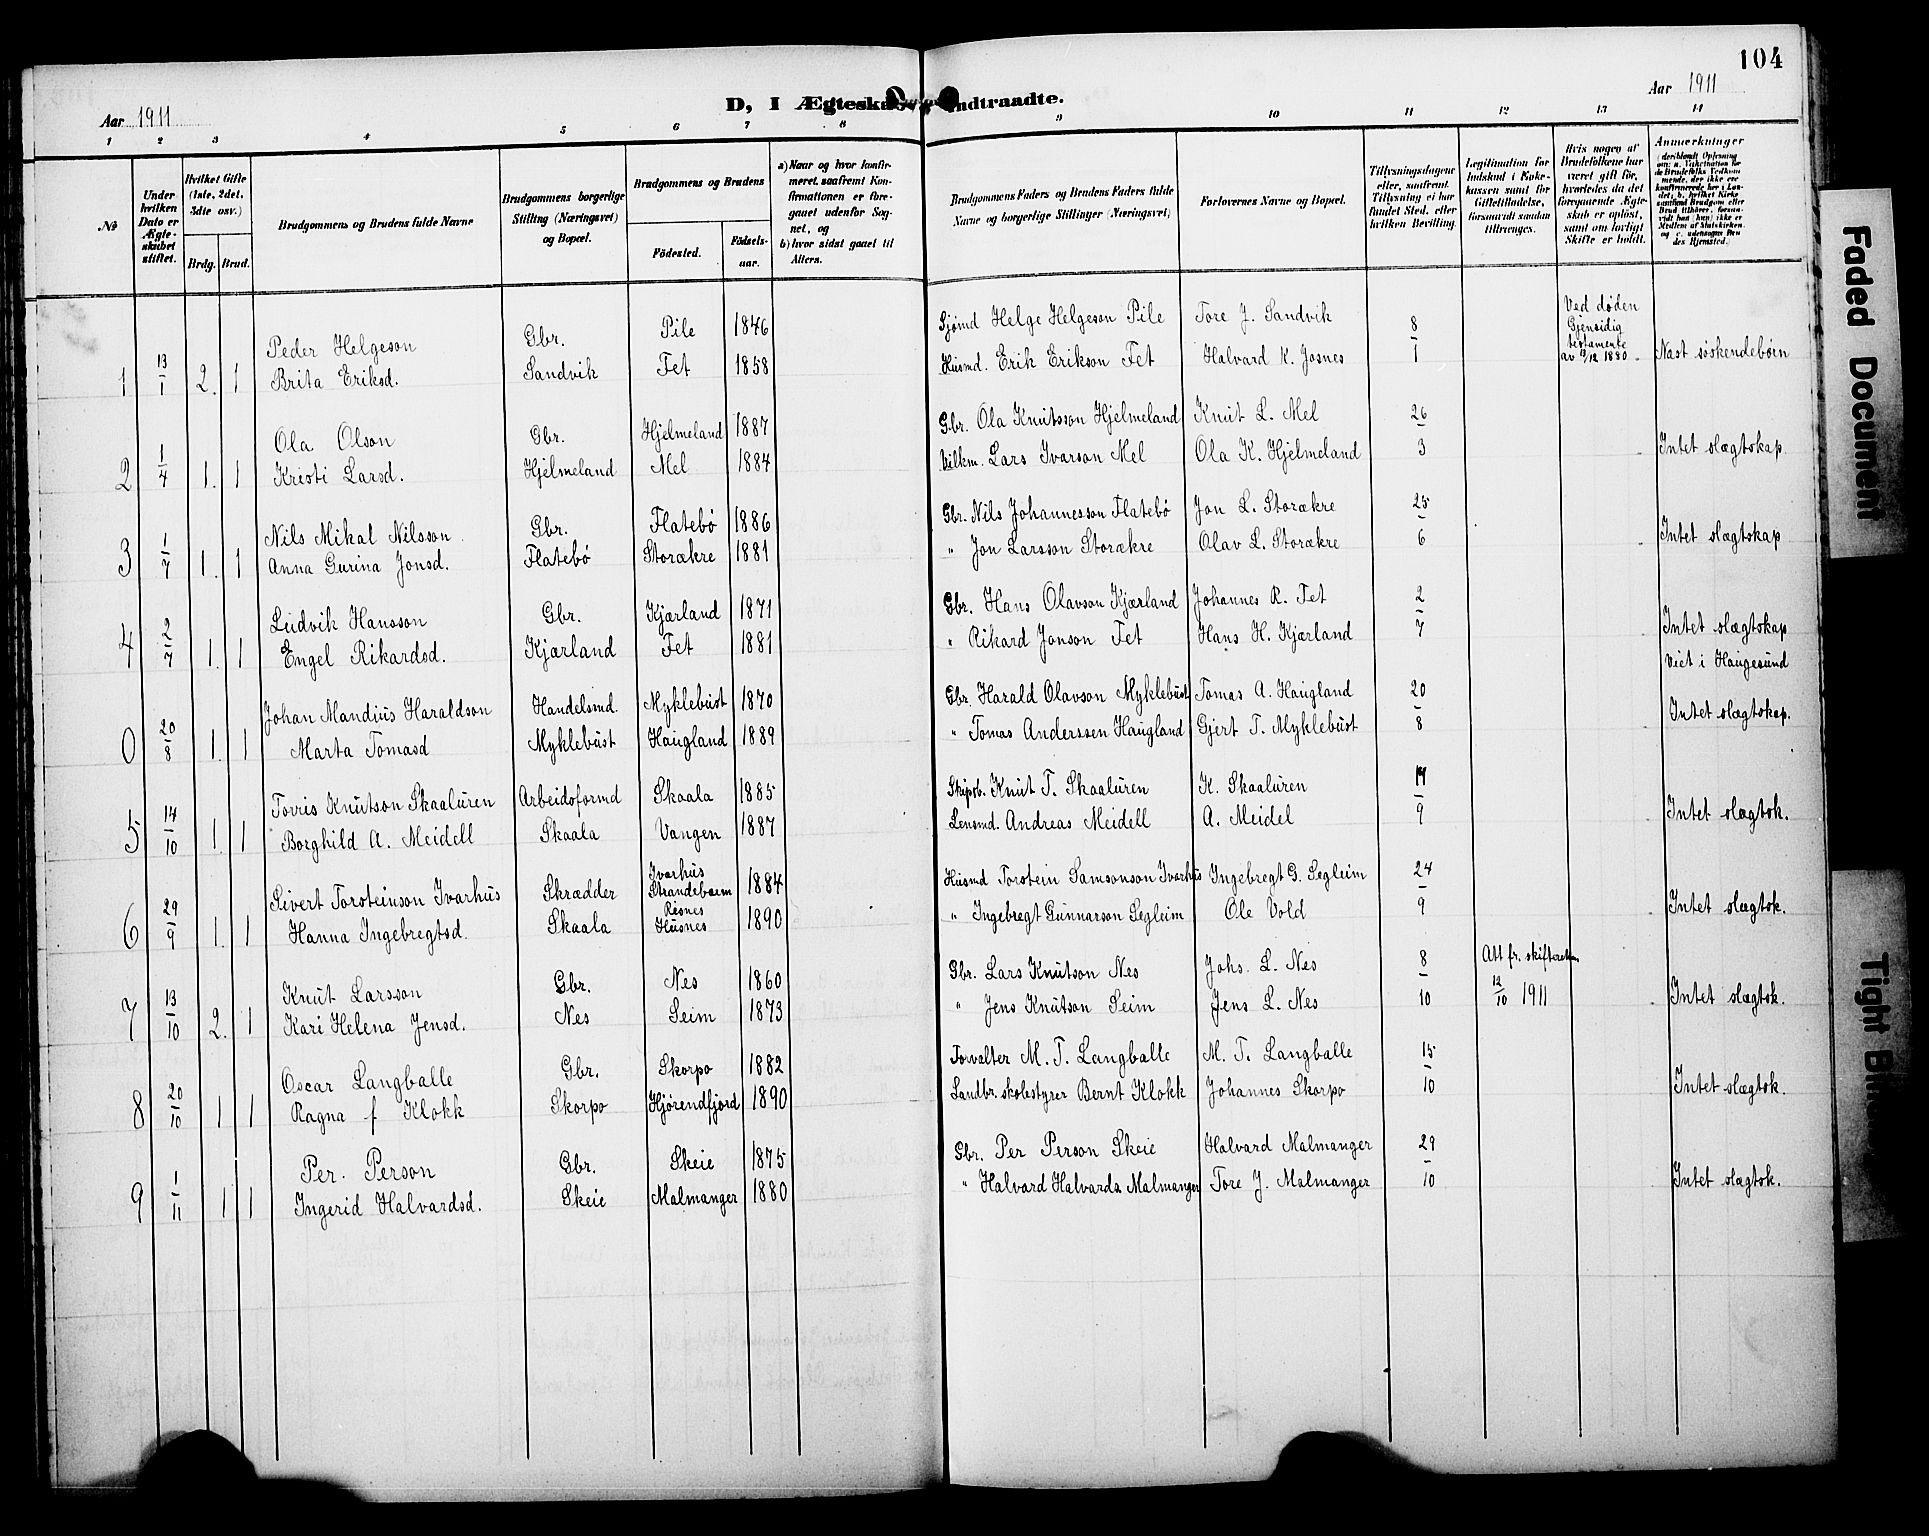 104
Aar 1911
Aar 1911
D, I Ægteskab Indtraadte.
1 2 3 4 5 6 7 8 9 10 11 12 13 14
№
Under hvilken Dato er Ægteskabet stiftet.
Hvilket Gifte (1ste, 2det, 3die osv.)
Brdg. Brud.
Brudgommens og Brudens fulde Navne
Brudgommens borgerlige Stilling (Næringsvei) og Bopæl.
Brudgommens og Brudens
Fødested.
Fødselsaar.
a) Naar og hvor konfirmeret, saafremt Konfirmationen er foregaaet udenfor Sognet, og
b) hvor sidst gaaet til Alters.
Brudgommens Faders og Brudens Faders fulde Navne og borgerlige Stillinger (Næringsvei)
Forlovernes Navne og Bopæl.
Tillysningsdagene eller, saafremt Tillysning ei har fundet Sted, efter hvilken Bevilling.
Legitimation for Indskud i Enkekassen samt for Giftetilladelse, forsaavidt saadan tiltrænges.
Hvis nogen af Brudefolkene har været gift før, hvorledes da det foregaaende Ægteskab er opløst, samt om lovligt Skifte er holdt.
Anmærkninger
1 13/1 2. 1 Peder Helgeson Gbr. Pile 1846 Sjømd Helge Helgeson Pile Tore J. Sandvik 8/1 Ved døden Gjensidig testamente av 9/12 1880
Brita Eriksd. Sandvik Fet 1858 Husmd. Erik Erikson Fet Halvard K. Josnes Næst søskendebørn
2 1/4 1. 1 Ola Olson Gbr. Hjelmeland 1887 Gbr. Ola Knutsson Hjelmeland Knut L. Mel 26/3
Kristi Larsd. Hjelmeland Mel 1884 Vilkm. Lars Ivarson Mel Ola K. Hjelmeland Intet slægtskap
3 1/7 1. 1 Nils Mikal Nilsson Gbr. Flatebø 1886 Gbr. Nils Johannesson Flatebø Jon L. Storækre 25/6
Anna Gurina Jonsd. Flatebø Storækre 1881 " Jon Larsson Storækre Olav L. Storækre Intet slægtskap
4 2/7 1. 1 Leidvik Hansson Gbr. Kjærland 1871 Gbr. Hans Olavson Kjærland Johannes R. Fet 2/7
Engel Rikardsd. Kjærland Fet 1881 " Rikard Jonson Fet Hans H. Kjærland Intet slægtskap
Viet i Haugesund
0 20/8 1. 1 Johan Mandius Haraldson Handelsmd. Myklebust 1870 Gbr. Harald Olavson Myklebust Tomas A. Haugland 20/8
Marta Tomasd Myklebust Haugland 1889 " Tomas Anderssen Haugland Gjert T. Myklebust Intet slægtskap.
5 14/10 1. 1 Tovris Knutson Skaaluren Arbeidsformd Skaala 1885 Skipsb. Knut T. Skaaluren K. Skaaluren 17/9
Borghild A. Meidell Skaala Vangen 1887 Lensmd. Andreas Meidell A. Meidel Intet slægtsk.
6 29/9 1. 1 Sivert Torsteinson Ivarhus Skrædder Ivarhus Strandebarm 1884 Husmd Torstein Samsonson Ivarhus Ingebregt G. Segleim 24/9
Hanna Ingebregtsd. Skaala Røsnes Husnes 1890 " Ingebregt Gunnarson Segleim Ole Vold Intet slægtsk.
7 13/10 2. 1 Knut Larsson Gbr. Nes 1860 Gbr. Lars Knutson Nes Johs. L. Nes 8/10 Att fr. skifteretten 12/10 1911
Kari Helena Jensd. Nes Seim 1873 " Jens Knutson Seim Jens L. Nes Intet slægtsk.
8 20/10 1 1 Oscar Langballe Gbr. Skorpo 1882 Forvalter M. T. Langballe M. T. Langballe 15/10
Ragna f Klokk Skorpo Hjørendfjord 1890 Landbr. skolestyrer Bernt Klokk Johannes Skorpo Intet slægtsk.
9 1/11 1 1 Per. Person Gbr. Skeie 1875 Gbr. Per Person Skeie Halvard Malmanger 29/10
Ingerid Halvardsd. Skeie Malmanger 1880 " Halvard Halvards. Malmanger Tore J. Malmanger Intet slægtsk.
Faded Document
Tight